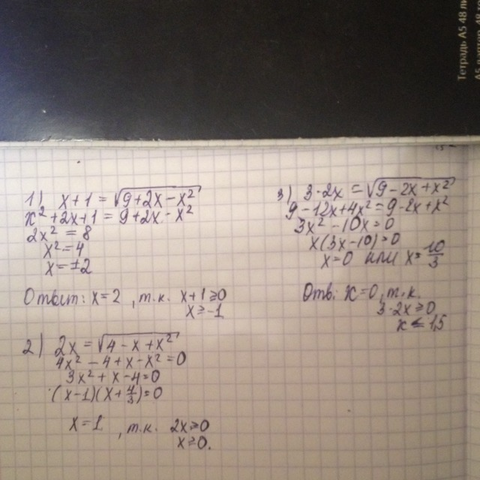 1) x+1 = √(9+2x-x²)
x²+2x+1 = 9+2x-x²
2x² = 8
x² = 4
x = ±2
Ответ: x=2, т.к. x+1≥0
x≥-1
2) 2x = √(4-x+x²)
4x²-4+x-x²=0
3x²+x-4=0
(x-1)(x+4/3)=0
x=1, т.к. 2x≥0
x≥0.
3) 3-2x = √(9-2x+x²)
9-12x+4x²=9-2x+x²
3x²-10x=0
x(3x-10)=0
x=0 или x=10/3
Отв: x=0, т.к.
3-2x≥0
x≤1,5
Тетрадь А5 48 ли